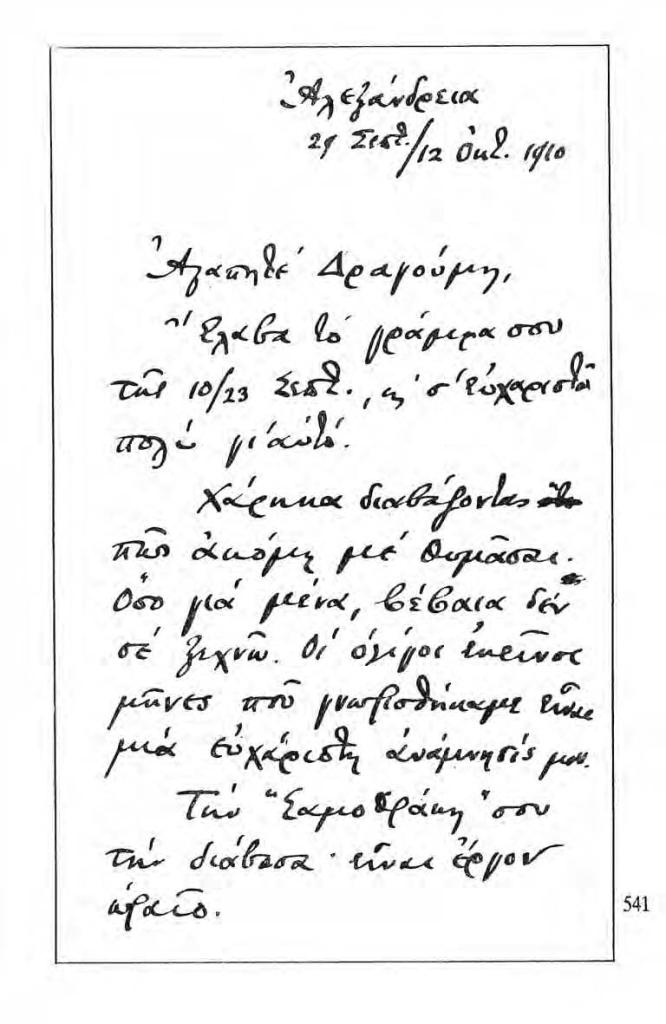 Ἀλεξάνδρεια
29 Σεπτ./12 Ὀκτ. 1910
Ἀγαπητέ Δραγούμη,
Ἔλαβα τό γράμμα σου
τῆς 10/23 Σεπτ., κ᾽ σ᾽ εὐχαριστῶ
πολύ γι᾽ αὐτό.
Χάρηκα διαβάζοντας
πῶς ἀκόμη μέ θυμᾶσαι.
Ὅσο γιά μένα, βέβαια δέν
σέ ξεχνῶ. Οἱ ὀλίγοι ἐκεῖνοι
μῆνες ποῦ γνωρισθήκαμε εἶναι
μιά εὐχάριστη ἀνάμνησίς μου.
Τήν "Σαμοθράκη" σου
τήν διάβασα· εἶναι ἔργον
ὡραῖο.
541